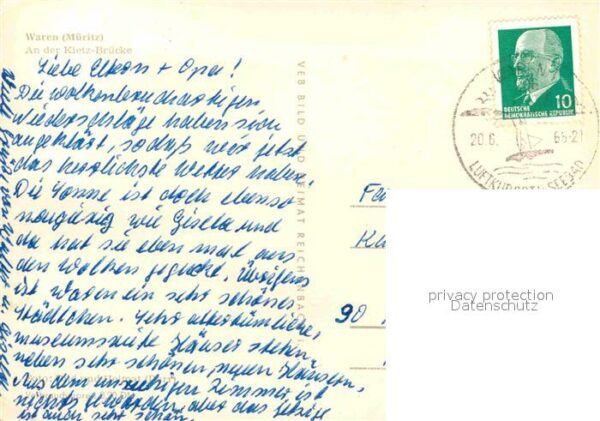 Waren (Müritz)
An der Kietz-Brücke
Liebe Eltern + Opa!
Die wolkenbruchartigen
Niederschläge haben sich
aufgeklärt, sodaß wir jetzt
das herrlichste Wetter haben.
Die Sonne ist doch ebenso
neugierig wie Gisela und
da hat sie eben mal aus
den Wolken geguckt. Übrigens
ist Waren ein sehr schönes
Städtchen. Sehr altertümliche,
museumsreife Häuser stehen
neben sehr schönen, neuen Häusern.
Aus dem Zimmer ist
nichts geworden, aber das jetzige
ist auch sehr schön.
VEB BILD UND HEIMAT REICHENBACH
DEUTSCHE
DEMOKRATISCHE REPUBLIK
10
20.6. 65-21
LUFTKURORT SEEBAD
90
privacy protection
Datenschutz